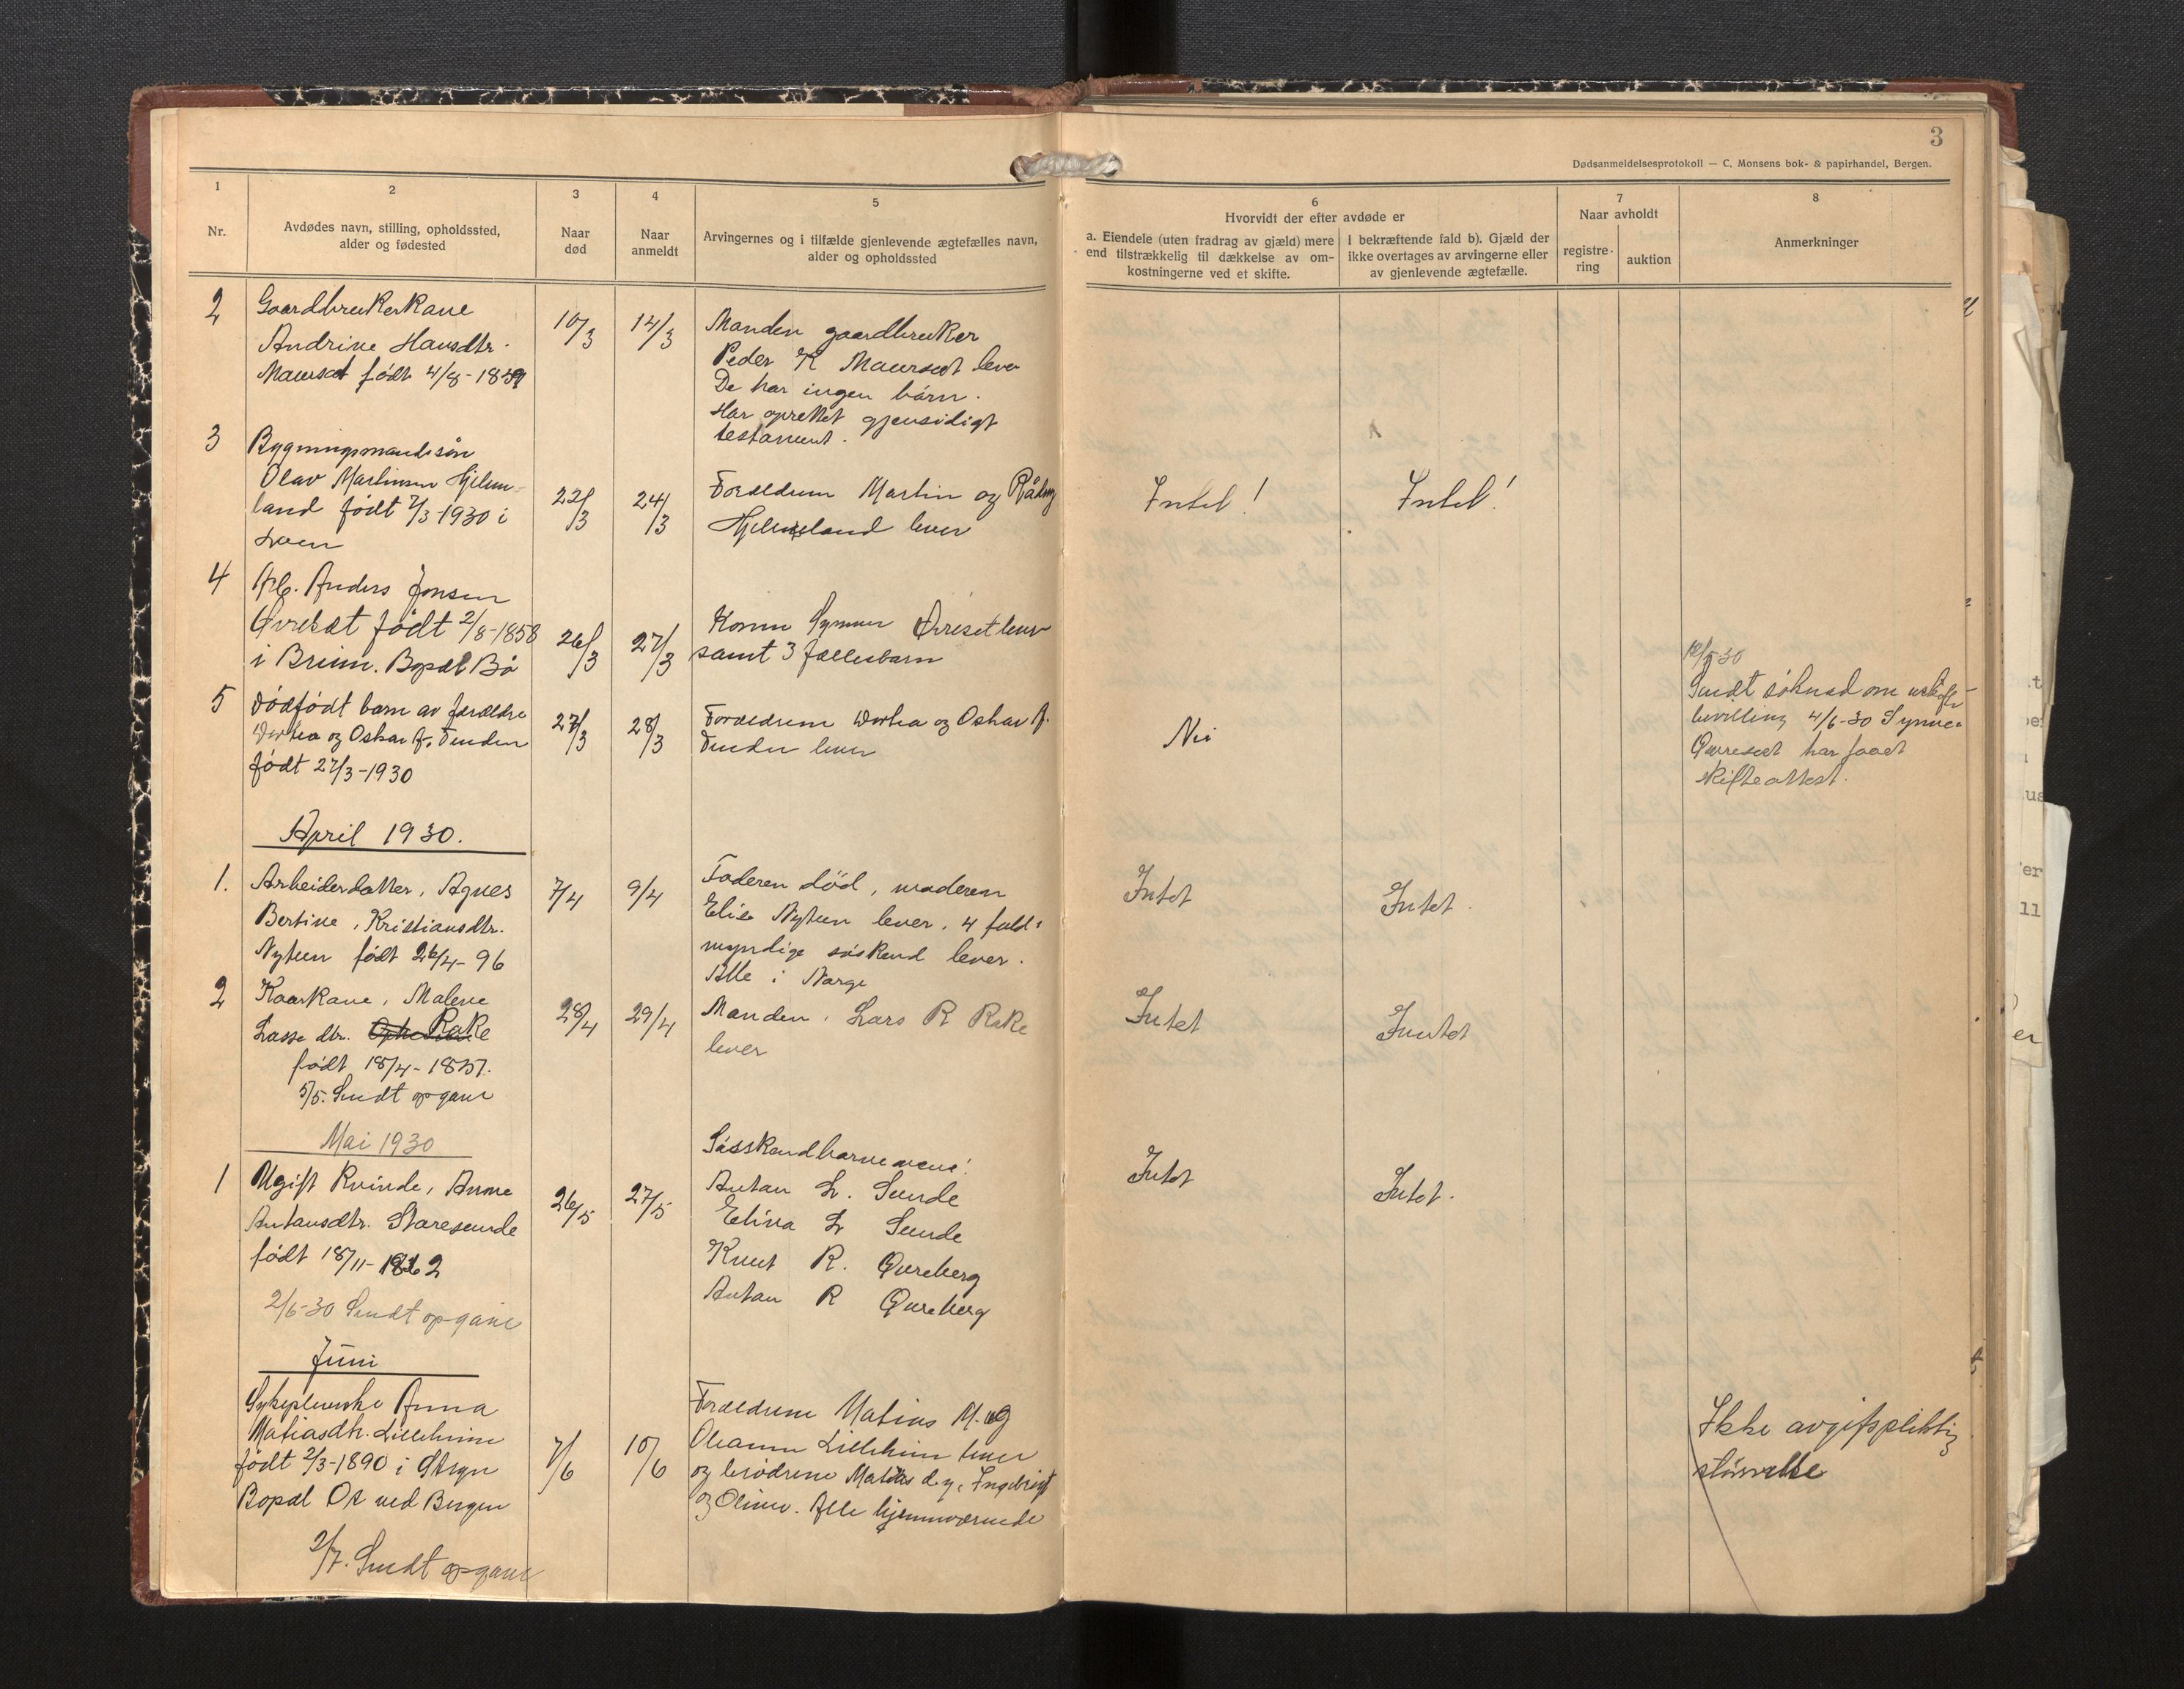 3
Dødsanmeldelsesprotokoll — C. Monsens bok- & papirhandel, Bergen.
1
Nr.
2
Avdødes navn, stilling, opholdssted,
alder og fødested
3
Naar
død
4
Naar
anmeldt
5
Arvingernes og i tilfælde gjenlevende ægtefælles navn,
alder og opholdssted
6
Hvorvidt der efter avdøde er
a. Eiendele (uten fradrag av gjæld) mere
end tilstrækkelig til dækkelse av om-
kostningerne ved et skifte.
I bekræftende fald b). Gjæld der
ikke overtages av arvingerne eller
av gjenlevende ægtefælle.
7
Naar avholdt
registre-
ring
auktion
8
Anmerkninger
2
Gaardbrukerkane
Andrine Hansdtr.
Maurset født 4/8-18
10/3
14/3
Manden gaardbruker
Peder K Maurset lever
De har ingen bårn.
Har oprettet gjensidigt
testament.
3
Bygningsmandssøn
Olav Martinsen Hjelme-
land født 7/3-1930 i
Loen
22/3
24/3
Forældrene Martin og
Hjelmeland lever
Intet!
Intet!
4
Arb. Anders Jonsen
Øvreset født 2/8-1858
i Breim. Bopæl Bø
26/3
27/3
Konen Synneve Øvreset lever
samt 3 fællesbarn
12/5 30
Sendt søknad om uskifte-
bevilling 4/6-30 Synneve
Øvreset har faaet
skifteattest.
5
Dødfødt barn av forældre
Dorthea og Oskar A. Tenden
født 27/3-1930
27/3
28/3
Forældrene Dorthea og Oskar A.
Tenden lever
Nei
April 1930.
1.
Arbeiderdatter, Agnes
Bertine, Kristiansdtr.
Nyteen født 26/4-96
7/4
9/4
Faderen död, moderen
Elise Nyteen lever. 4 fuld-
myndige søskend lever.
Alle i Norge
Intet
Intet.
2
Kaarkane, Malene
Lasse dtr. Rake
født 18/4-1837.
5/5. Sendt opgave
28/4
29/4
Manden, Lars R Rake
lever
Intet
Inntet
Mai 1930
1
Ugift Kvinde, Anne
Antonsdtr. Staresunde
født 18/11-1862
2/6-30 Sendt opgave
26/5
27/5
Søsskendbarnenene!
Anton L. Sunde
Elina L Sunde
Knut R. Øvreberg
Anton R Øvreberg
Intet
Intet.
Juni
Sykepleierske Anna
Matiasdtr. Lilleheim
født 2/3-1890 i Stryn
Bopæl Os ved Bergen
2/7. Sendt opgave
7/6
10/6
Forældrene Matias M. og
Oleanna Lilleheim lever
og brødrene Matias d.y., Ingebrigt
og Oliver. Alle hjemmeværende
Ikke avgiftspliktig
størrelse